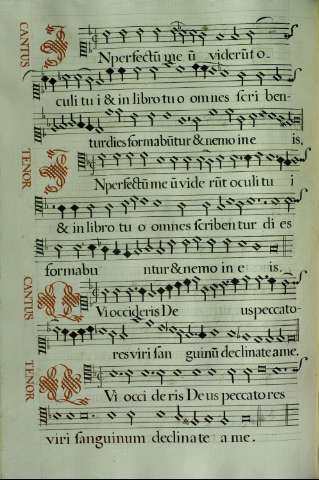 CANTUS
Nperfectũ me ũ viderũt o.
culi tu i & in libro tu o omnes scri ben-
tur dies formabũtur & nemo in e is,
TENOR
Nperfectũ me ũ vide rũt oculi tu i
& in libro tu o omnes scriben tur di es
formabu ntur & nemo in e is.
CANTUS
Vi occideris De us peccato-
res viri san guinũ declinate a me.
TENOR
Vi occi de ris De us peccatores
viri sanguinum declinate a me.